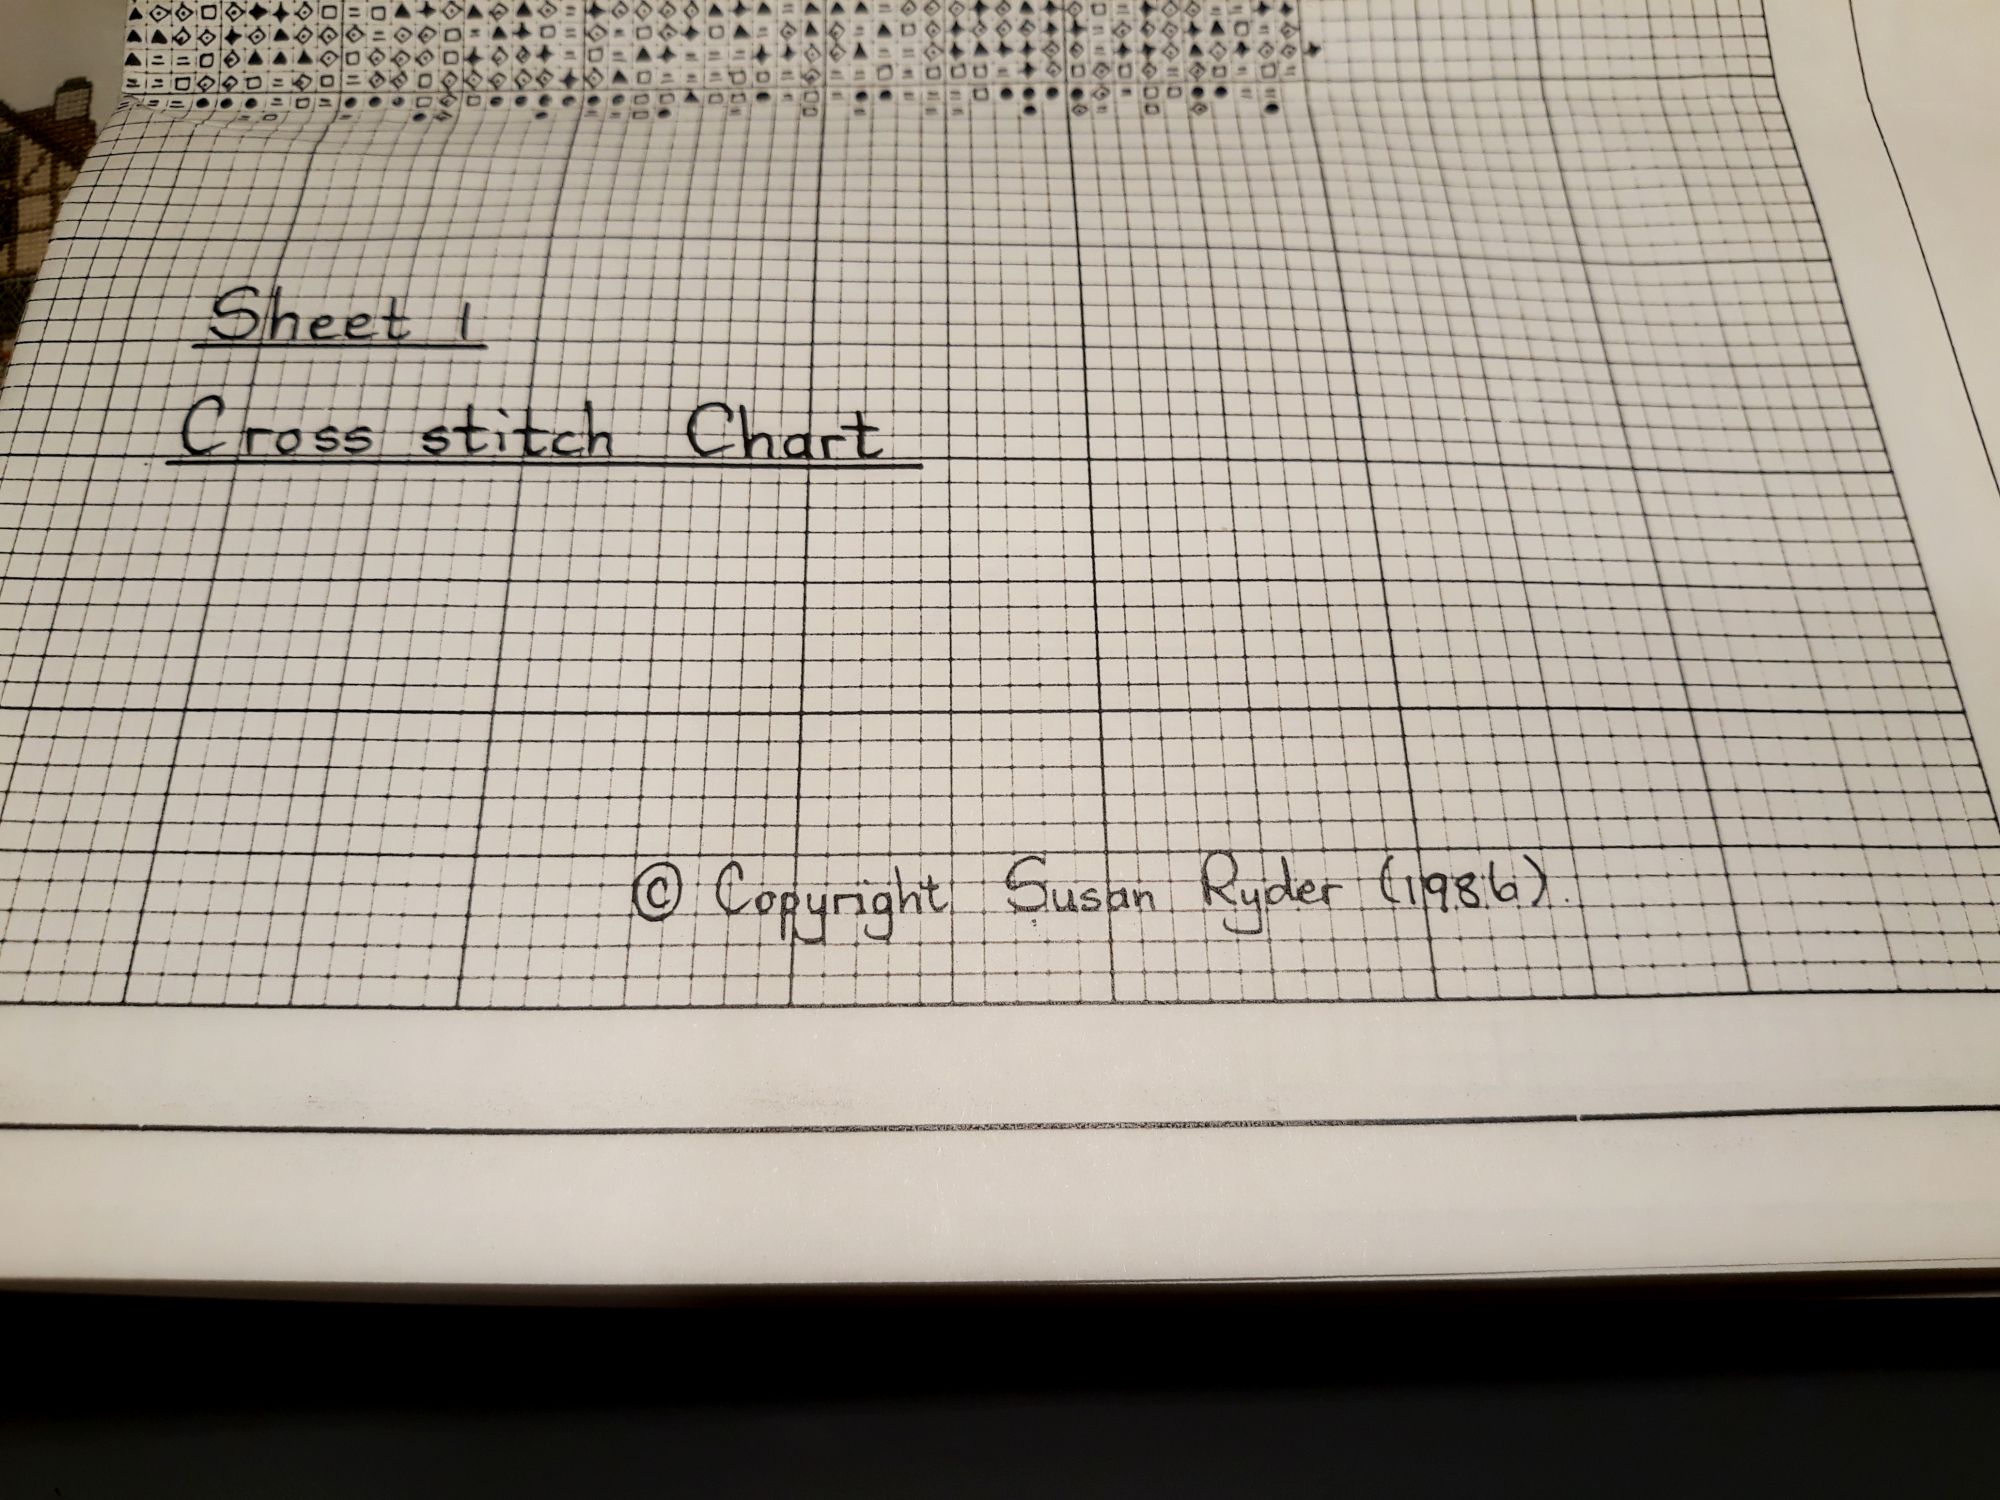 Sheet 1
Cross stitch Chart
© Copyright Susan Ryder (1986).